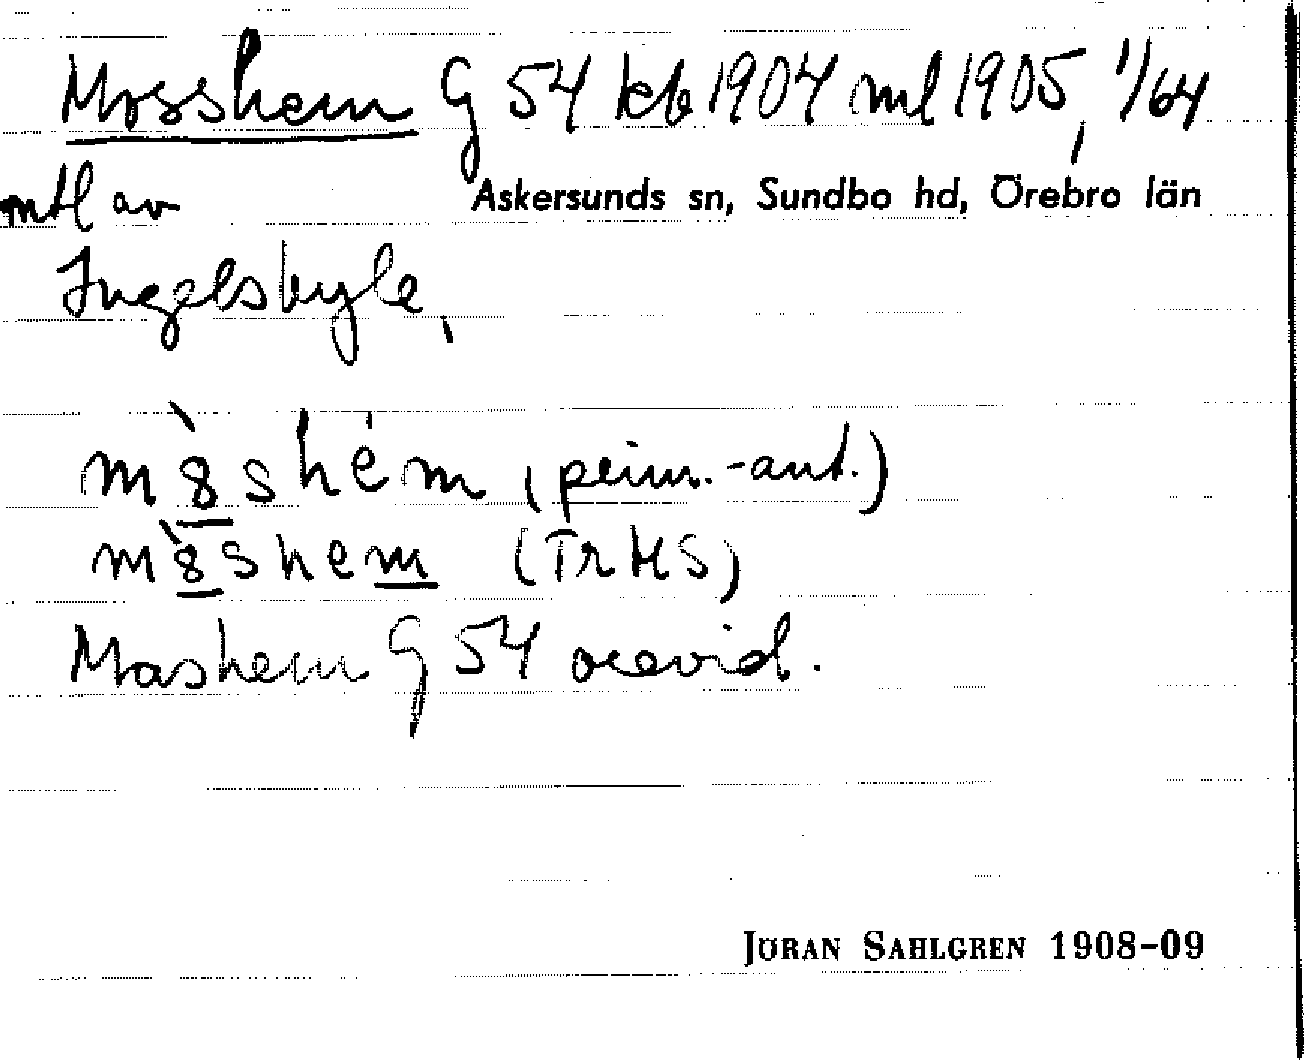 Mosshem G 54 kb 1904 ml 1905, 1/64
mtl av Askersunds sn, Sundbo hd, Örebro län
Ingelsbyle,
m8̀shém (prim.-ant.)
m8̀shem (TrHS)
Moshem G 54 orevid.
JÖRAN SAHLGREN 1908-09